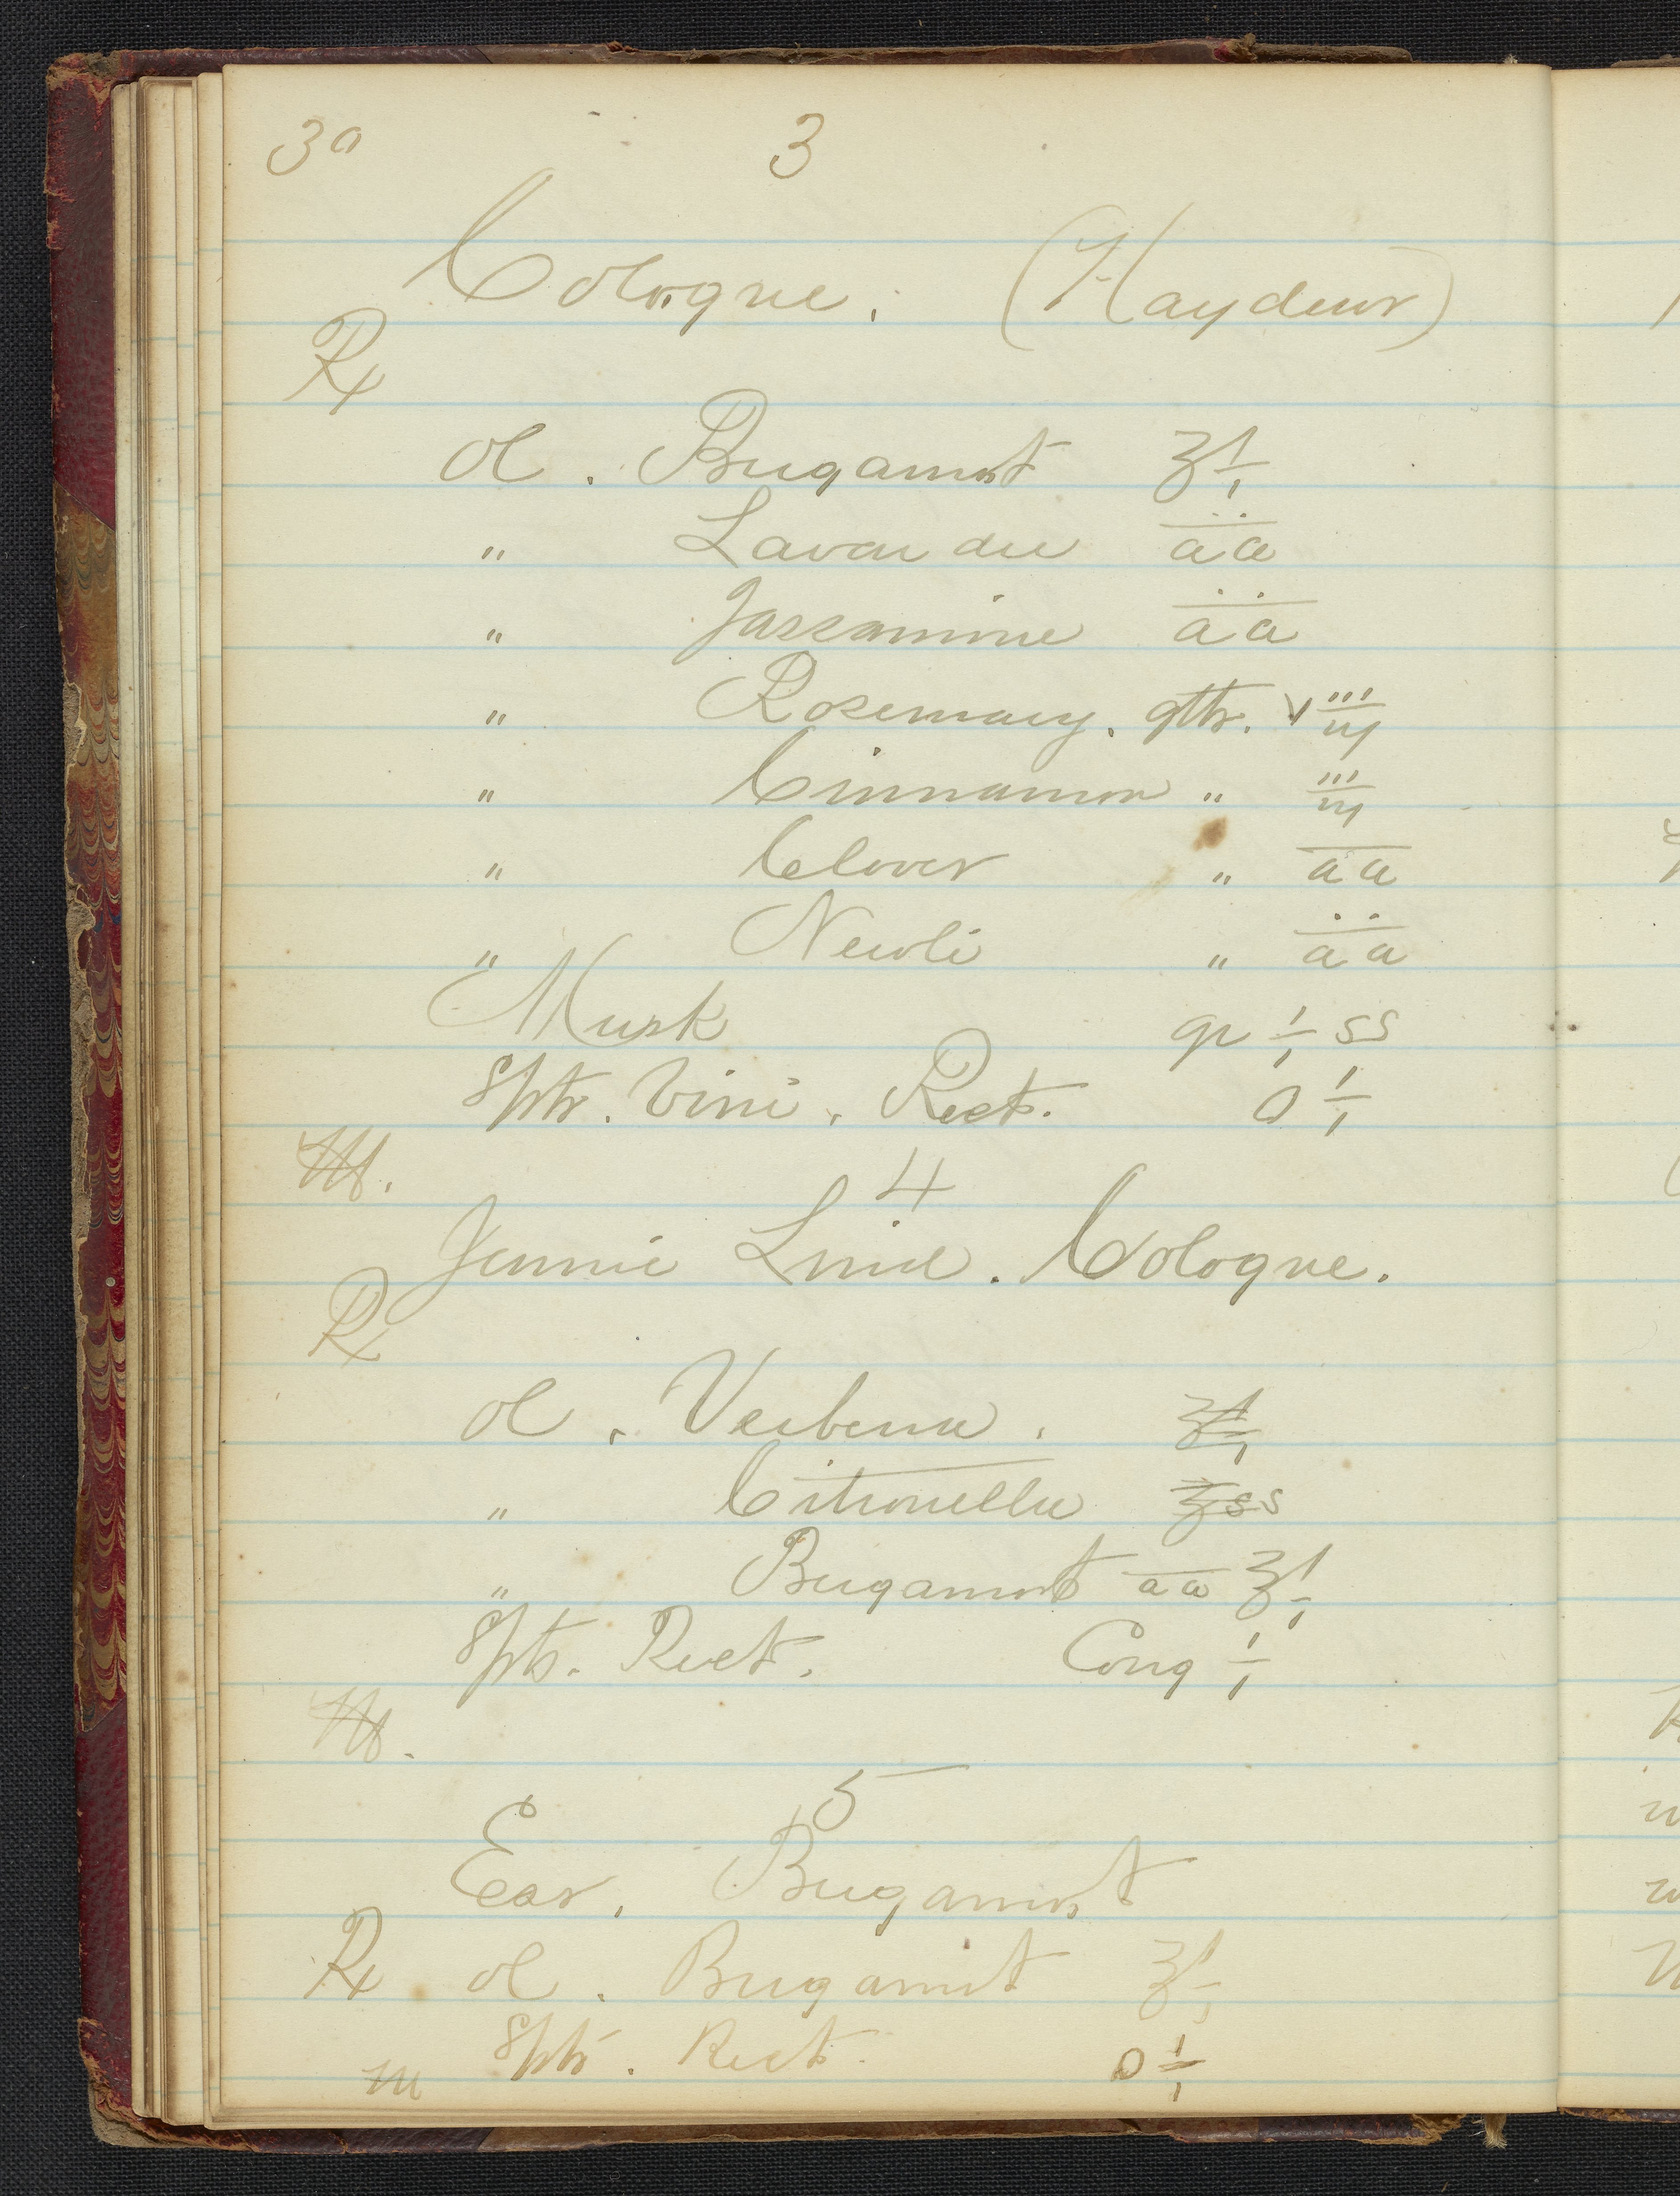 30 3
Cologne. (Haydens)
℞
Ol. Bergamot ʒ i
" Lavandu āā
" Jassamine āā
" Rosemary. gtts. viij
" Cinnamon " iij
" Cloves " āā
" Neroli " āā
Musk gr i ss
Spts. Vini. Rect. O i
M. 4
Jennie Lind. Cologne.
℞
Ol. Verbena. ʒ i
" Citronella ʒ ss
" Bergamot āā ʒ i
Spts. Rect. Cong i
M.
5
Ess. Bergamot
℞ Ol. Bergamot ʒ i
Spts. Rect. O i
M